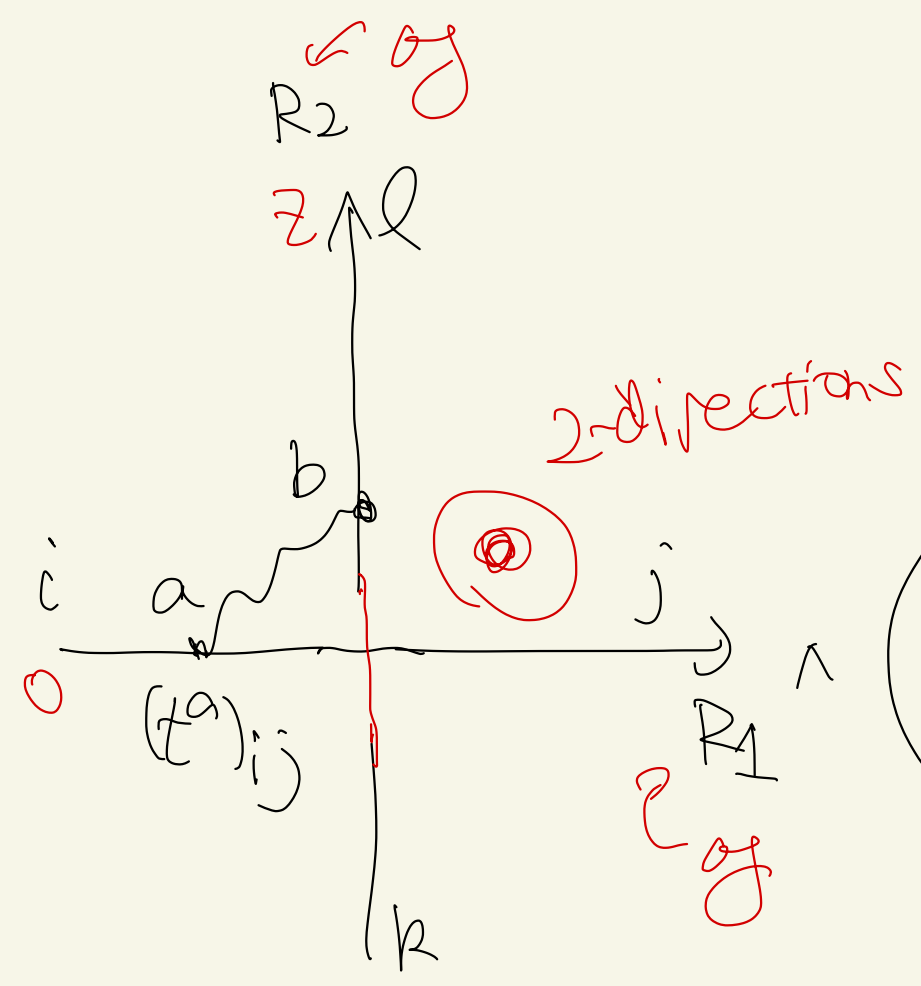 𝔤
R2
z l
2-directions
b
i a j
0
(t^a)_{ij}
R1
𝔤
k